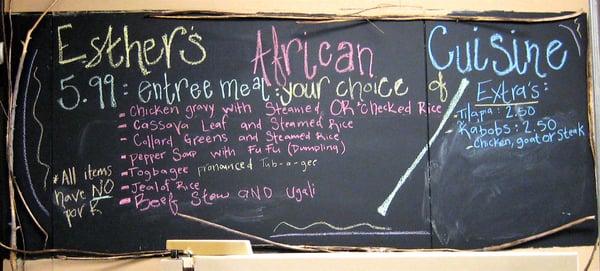 Esther's African Cuisine
5.99: entree meal: your choice of
- Chicken gravy with Steamed OR Checked Rice
- Cassava Leaf and Steamed Rice
- Collard Greens and Steamed Rice
- pepper Soup with FuFu (Dumpling)
- Togbagee pronounced Tub-a-gee
- Jealof Rice
- Beef Stew AND Ugali
*All items
have NO
pork
Extra's:
-Tilapia: 2.50
-Kabobs: 2.50
-chicken, goat or steak